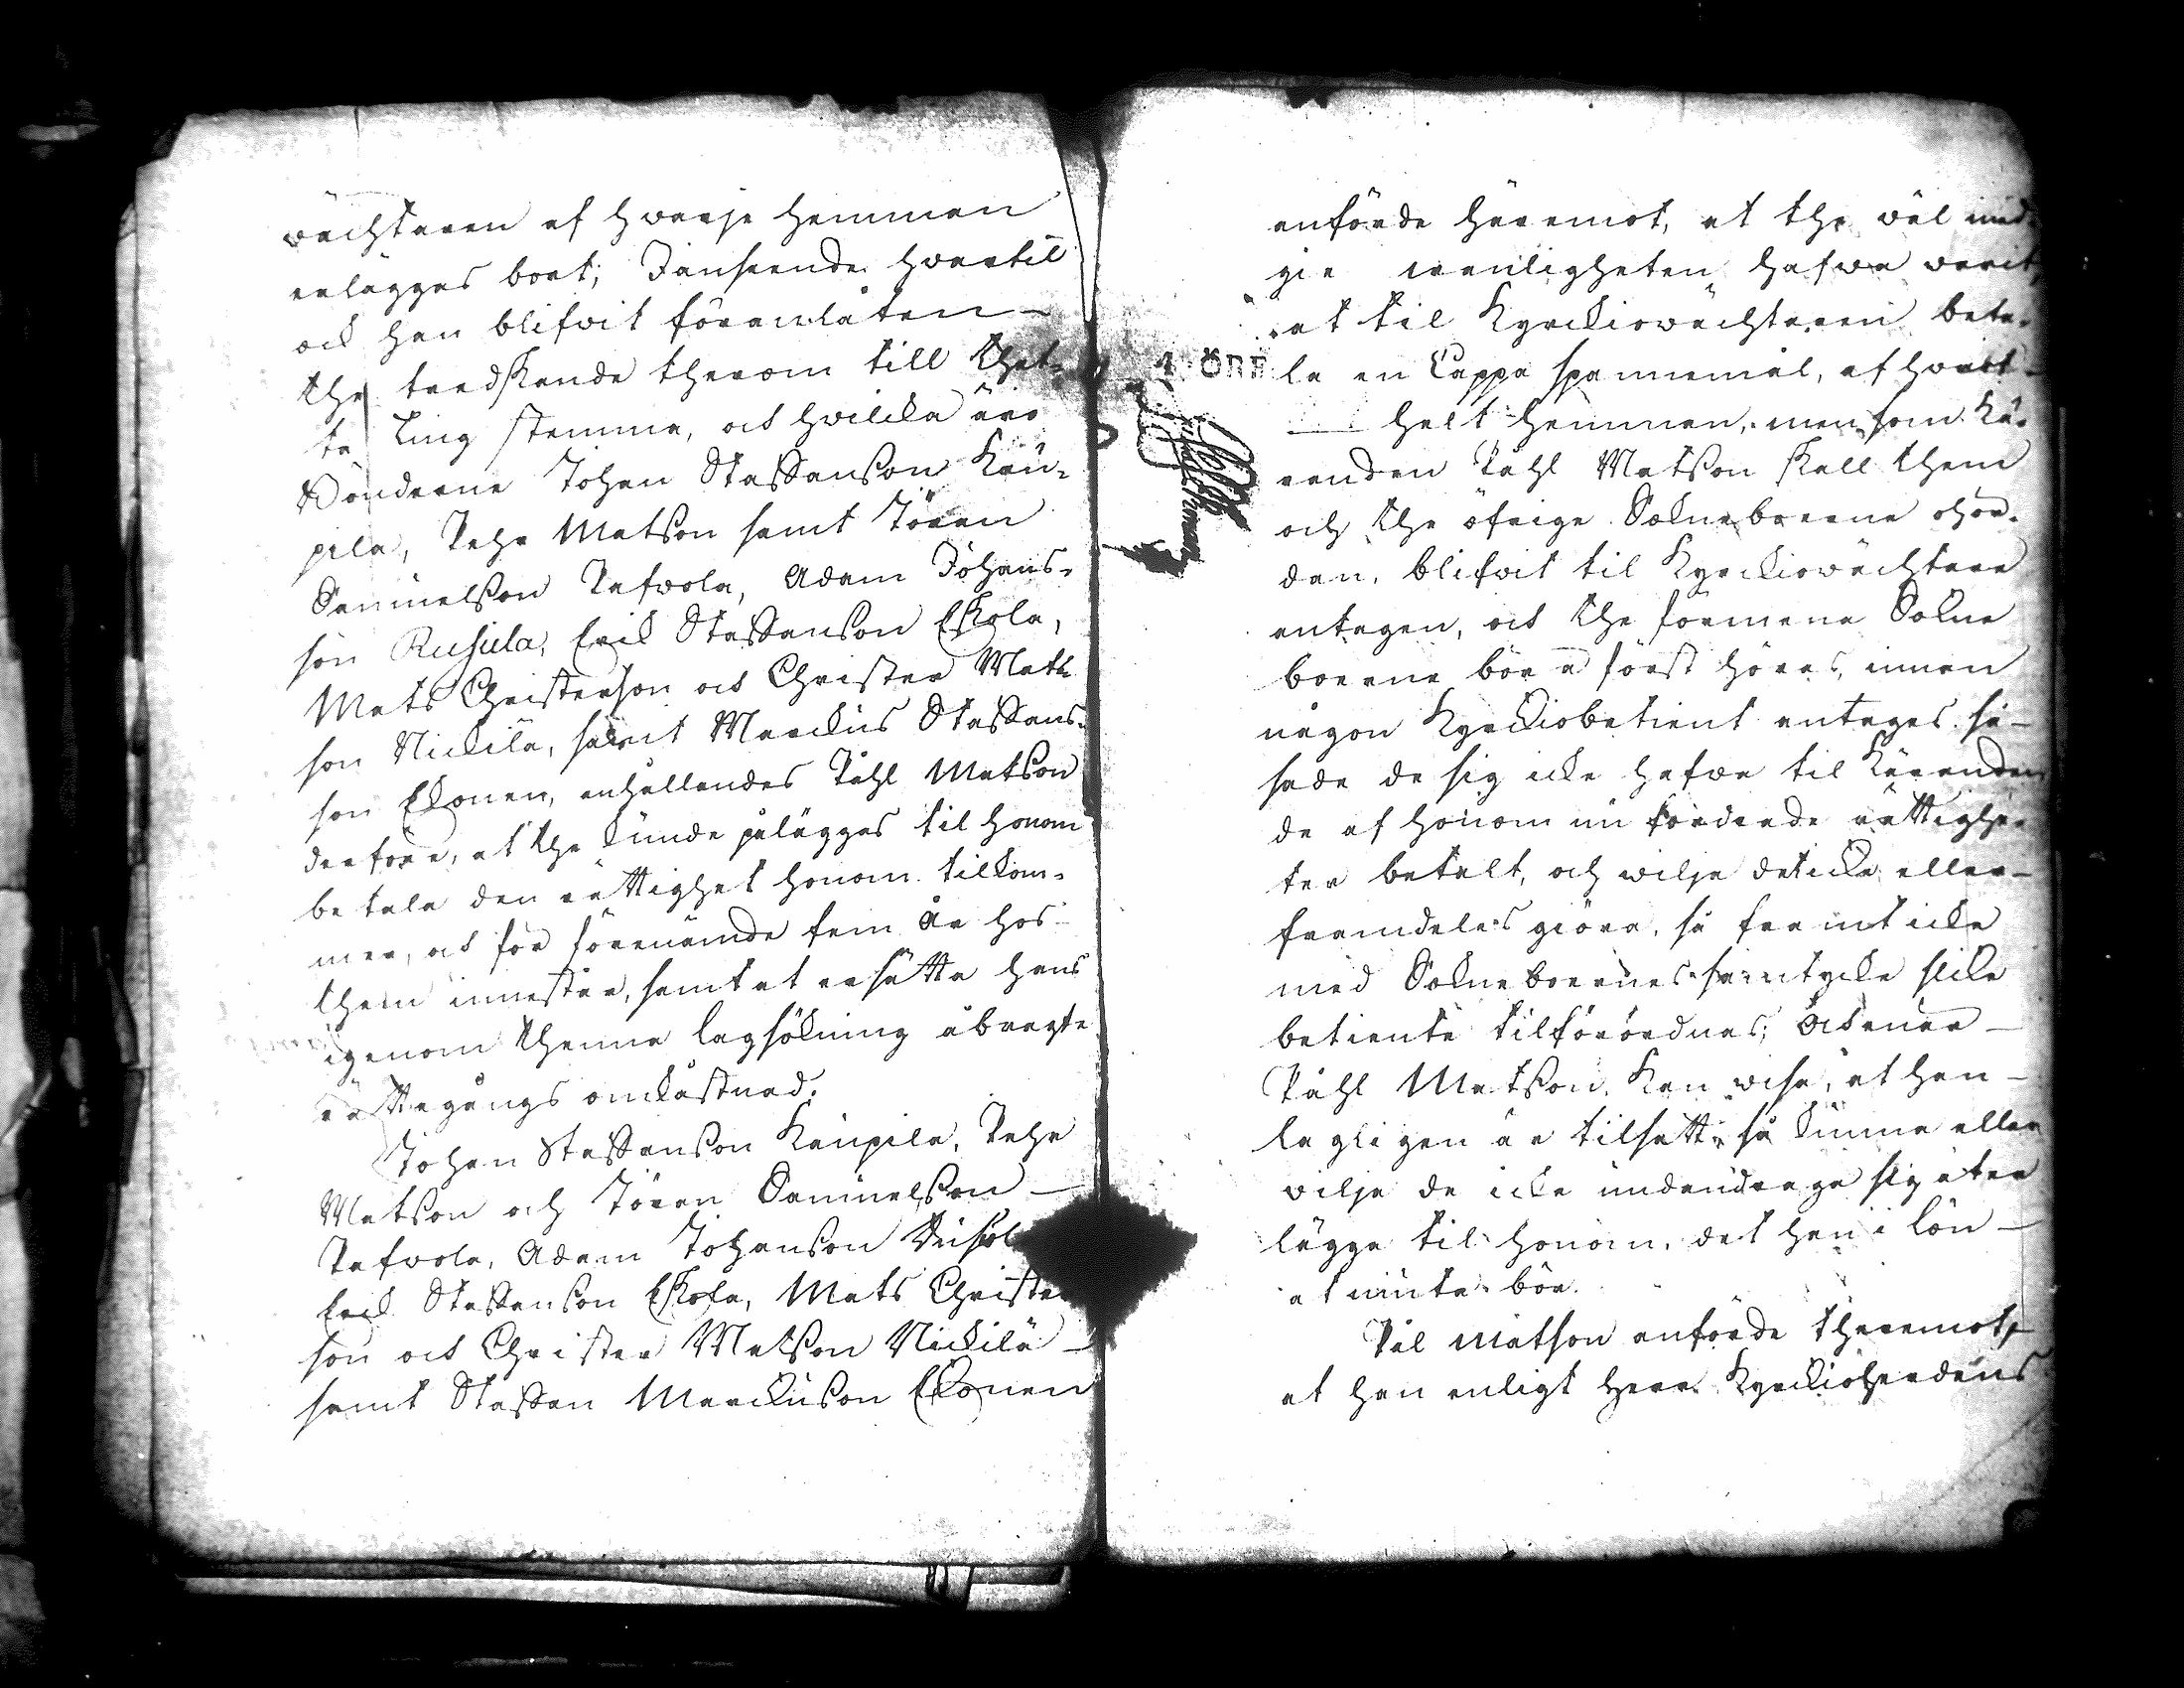 wächtaren af hwarje Hemman
erlägges bort; Jansende hwartil
ock han blifwit föranlåten
the tredskande therom till thet-
ta Ting stemma, och hwilcka äro
Bönderne Johan Staffansson Kau-
pila, Pehr Matsson samt Jöran
Samuelsson Pafvola, Adam Johans-
son Rusula, Erick Staffansson Eskola,
Mats Christersson och Christer Mats-
son Nickilä, samt Marckus Staffans-
son Ekonen, anhållandes Påhl Matsson
derföre, at the kunde pålägges til honom
betala den rättighet honom tilkom-
mer, och för förenämde fem år hos
them innestår, samt at ersätta hans
igenom thenna lagsökning åbragte
rättegångs omkåstnad.
Johan Staffansson Kaupila, Pehr
Matsson och Jöran Samuelsson
Pafvola, Adam Johansson
Erick Staffansson Eskola, Mats Christer
son och Christer Matsson Nickilä
samt Staffan Marckusson Ekonen
anförde häremot, at the wäl
wanligheten hafwa warit,
at til Kyrckiowächtaren beta-
1 ÖRE
la en Cappa spannemål, af hwart
helt hemman, men som Kä-
randen Påhl Matsson skall them
och the öfrige Soknebrerne ohör-
dan, blifwit til Kyrckiowächtare
antagen, och the förmena Sokne
boerne böra först höras, innan
någon Kyrckiobetient antages, så
sade de sig icke hafwa til Käranden
de af honom nu fordrade rättighe-
ter betalt, och wilja det icke eller
framdeles giöra, så framt icke
med Sokneboernes samtycke slike
betiente tilförordnas; Och när
Påhl Matsson kan wisa, at han
lagligen är tilsatt, så kunna eller
wilja de icke undandraga sig at er
lägga til honom, det han i lön
at niuta bör.
Pål Matson anförde theremot,
at han enligt Herr Kyrckioherdens